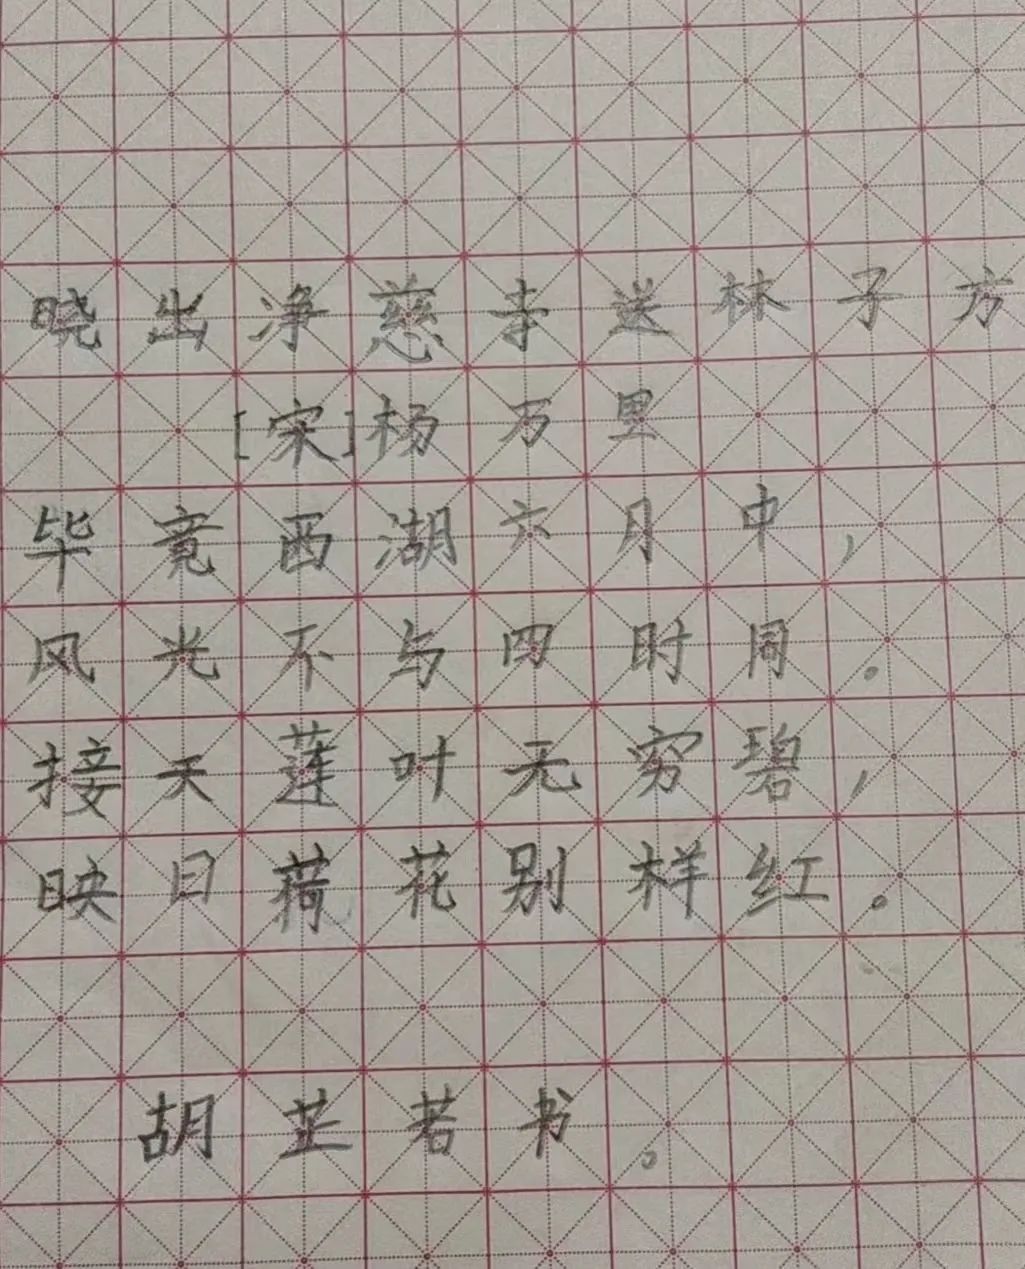 晓出净慈寺送林子方
[宋]杨万里
毕竟西湖六月中，
风光不与四时同。
接天莲叶无穷碧，
映日荷花别样红。
胡芷若书。